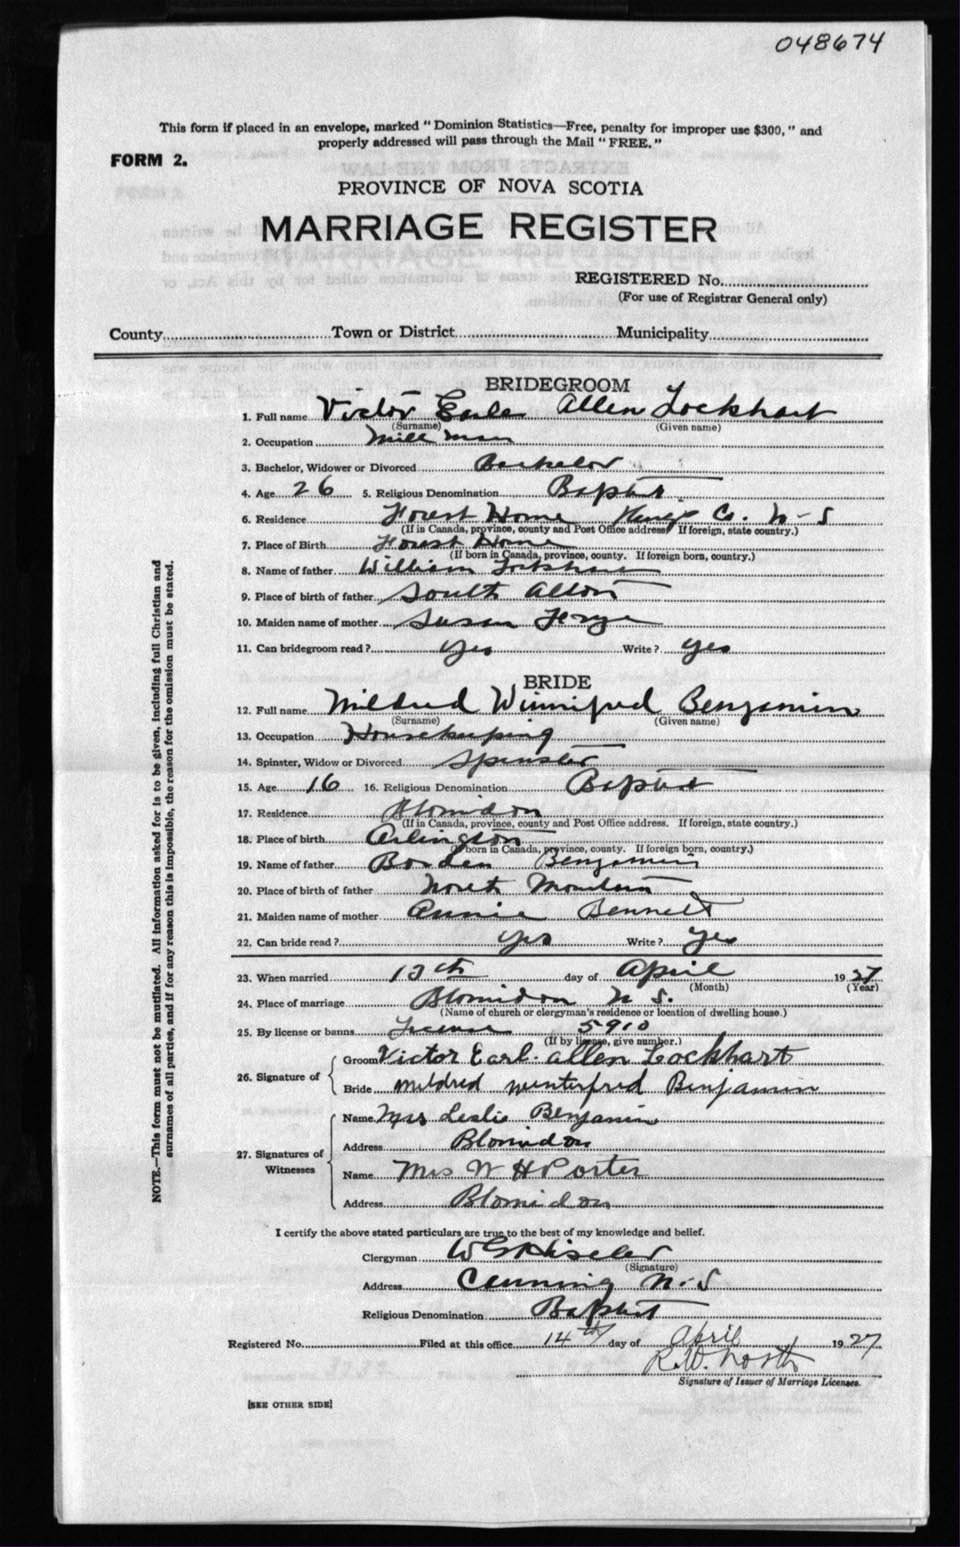 048674
This form if placed in an envelope, marked "Dominion Statistics—Free, penalty for improper use $300," and
properly addressed will pass through the Mail "FREE."
FORM 2.
PROVINCE OF NOVA SCOTIA
MARRIAGE REGISTER
REGISTERED No.
(For use of Registrar General only)
County Town or District Municipality
BRIDEGROOM
1. Full name Victor Earle Allen Lockhart
(Surname) (Given name)
2. Occupation Mill man
3. Bachelor, Widower or Divorced Bachelor
4. Age 26 5. Religious Denomination Baptist
6. Residence Forest Home Kings Co. N-S
(If in Canada, province, county and Post Office address. If foreign, state country.)
7. Place of Birth Forest Home
(If born in Canada, province, county. If foreign born, country.)
8. Name of father William Lockhart
9. Place of birth of father South Alton
10. Maiden name of mother Susan
11. Can bridegroom read? yes Write? yes
BRIDE
12. Full name Mildred Winnifred Benjamin
(Surname) (Given name)
13. Occupation Housekeeping
14. Spinster, Widow or Divorced Spinster
15. Age 16 16. Religious Denomination Baptist
17. Residence Blomidon
(If in Canada, province, county and Post Office address. If foreign, state country.)
18. Place of birth Arlington
(If born in Canada, province, county. If foreign born, country.)
19. Name of father Borden Benjamin
20. Place of birth of father North Mountain
21. Maiden name of mother Annie Bennett
22. Can bride read? yes Write? yes
23. When married 13th day of April 1927
(Month) (Year)
24. Place of marriage Blomidon N S.
(Name of church or clergyman's residence or location of dwelling house.)
25. By license or banns License 5910
(If by license, give number.)
26. Signature of
Groom Victor Earl Allen Lockhart
Bride Mildred Winterfred Benjamin
27. Signatures of Witnesses
Name Mrs Leslie Benjamin
Address Blomidon
Name Mrs W H Porter
Address Blomidon
I certify the above stated particulars are true to the best of my knowledge and belief.
Clergyman
(Signature)
Address Canning N-S
Religious Denomination Baptist
Registered No. Filed at this office 14th day of April 1927
R.W. North
Signature of Issuer of Marriage Licenses.
[SEE OTHER SIDE]
NOTE.—This form must not be mutilated. All information asked for is to be given, including full Christian and
surnames of all parties, and if for any reason this is impossible, the reason for the omission must be stated.